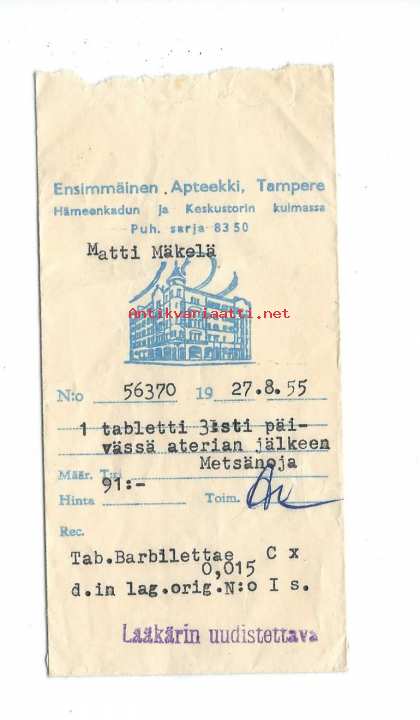 Ensimmäinen Apteekki, Tampere
Hämeenkadun ja Keskustorin kulmassa
Puh. sarja 83 50
Matti Mäkelä
Antikvariaatti.net
N:o 56370 19 27.8.55
1 tabletti 3:sti päi-
vässä aterian jälkeen
Metsänoja
Määr.
91:-
Hinta Toim.
Rec.
Tab.Barbilettae C x
0,015
d.in lag.orig.N:o I s.
Lääkärin uudistettava